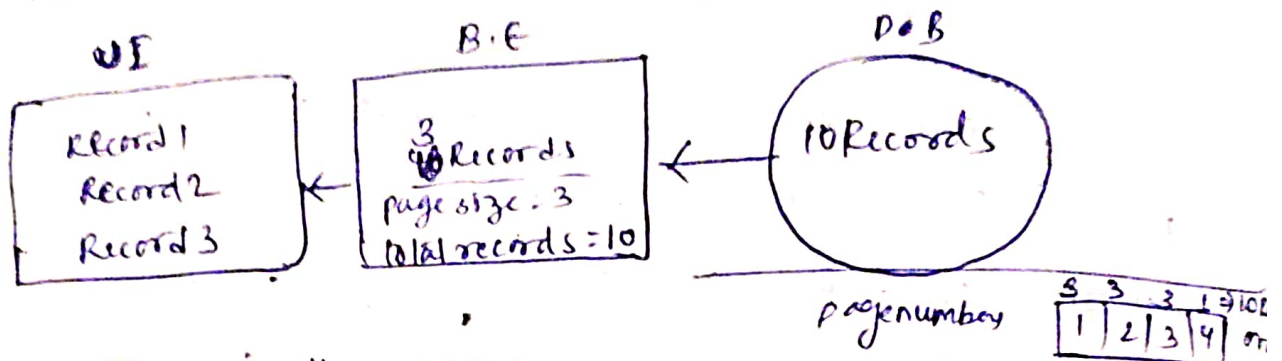 UI
Record1
Record2
Record3
B.E
3
Records
page size. 3
total records = 10
D.B
10 Records
pagenumber
3 3 3 1 ⇒
1 2 3 4